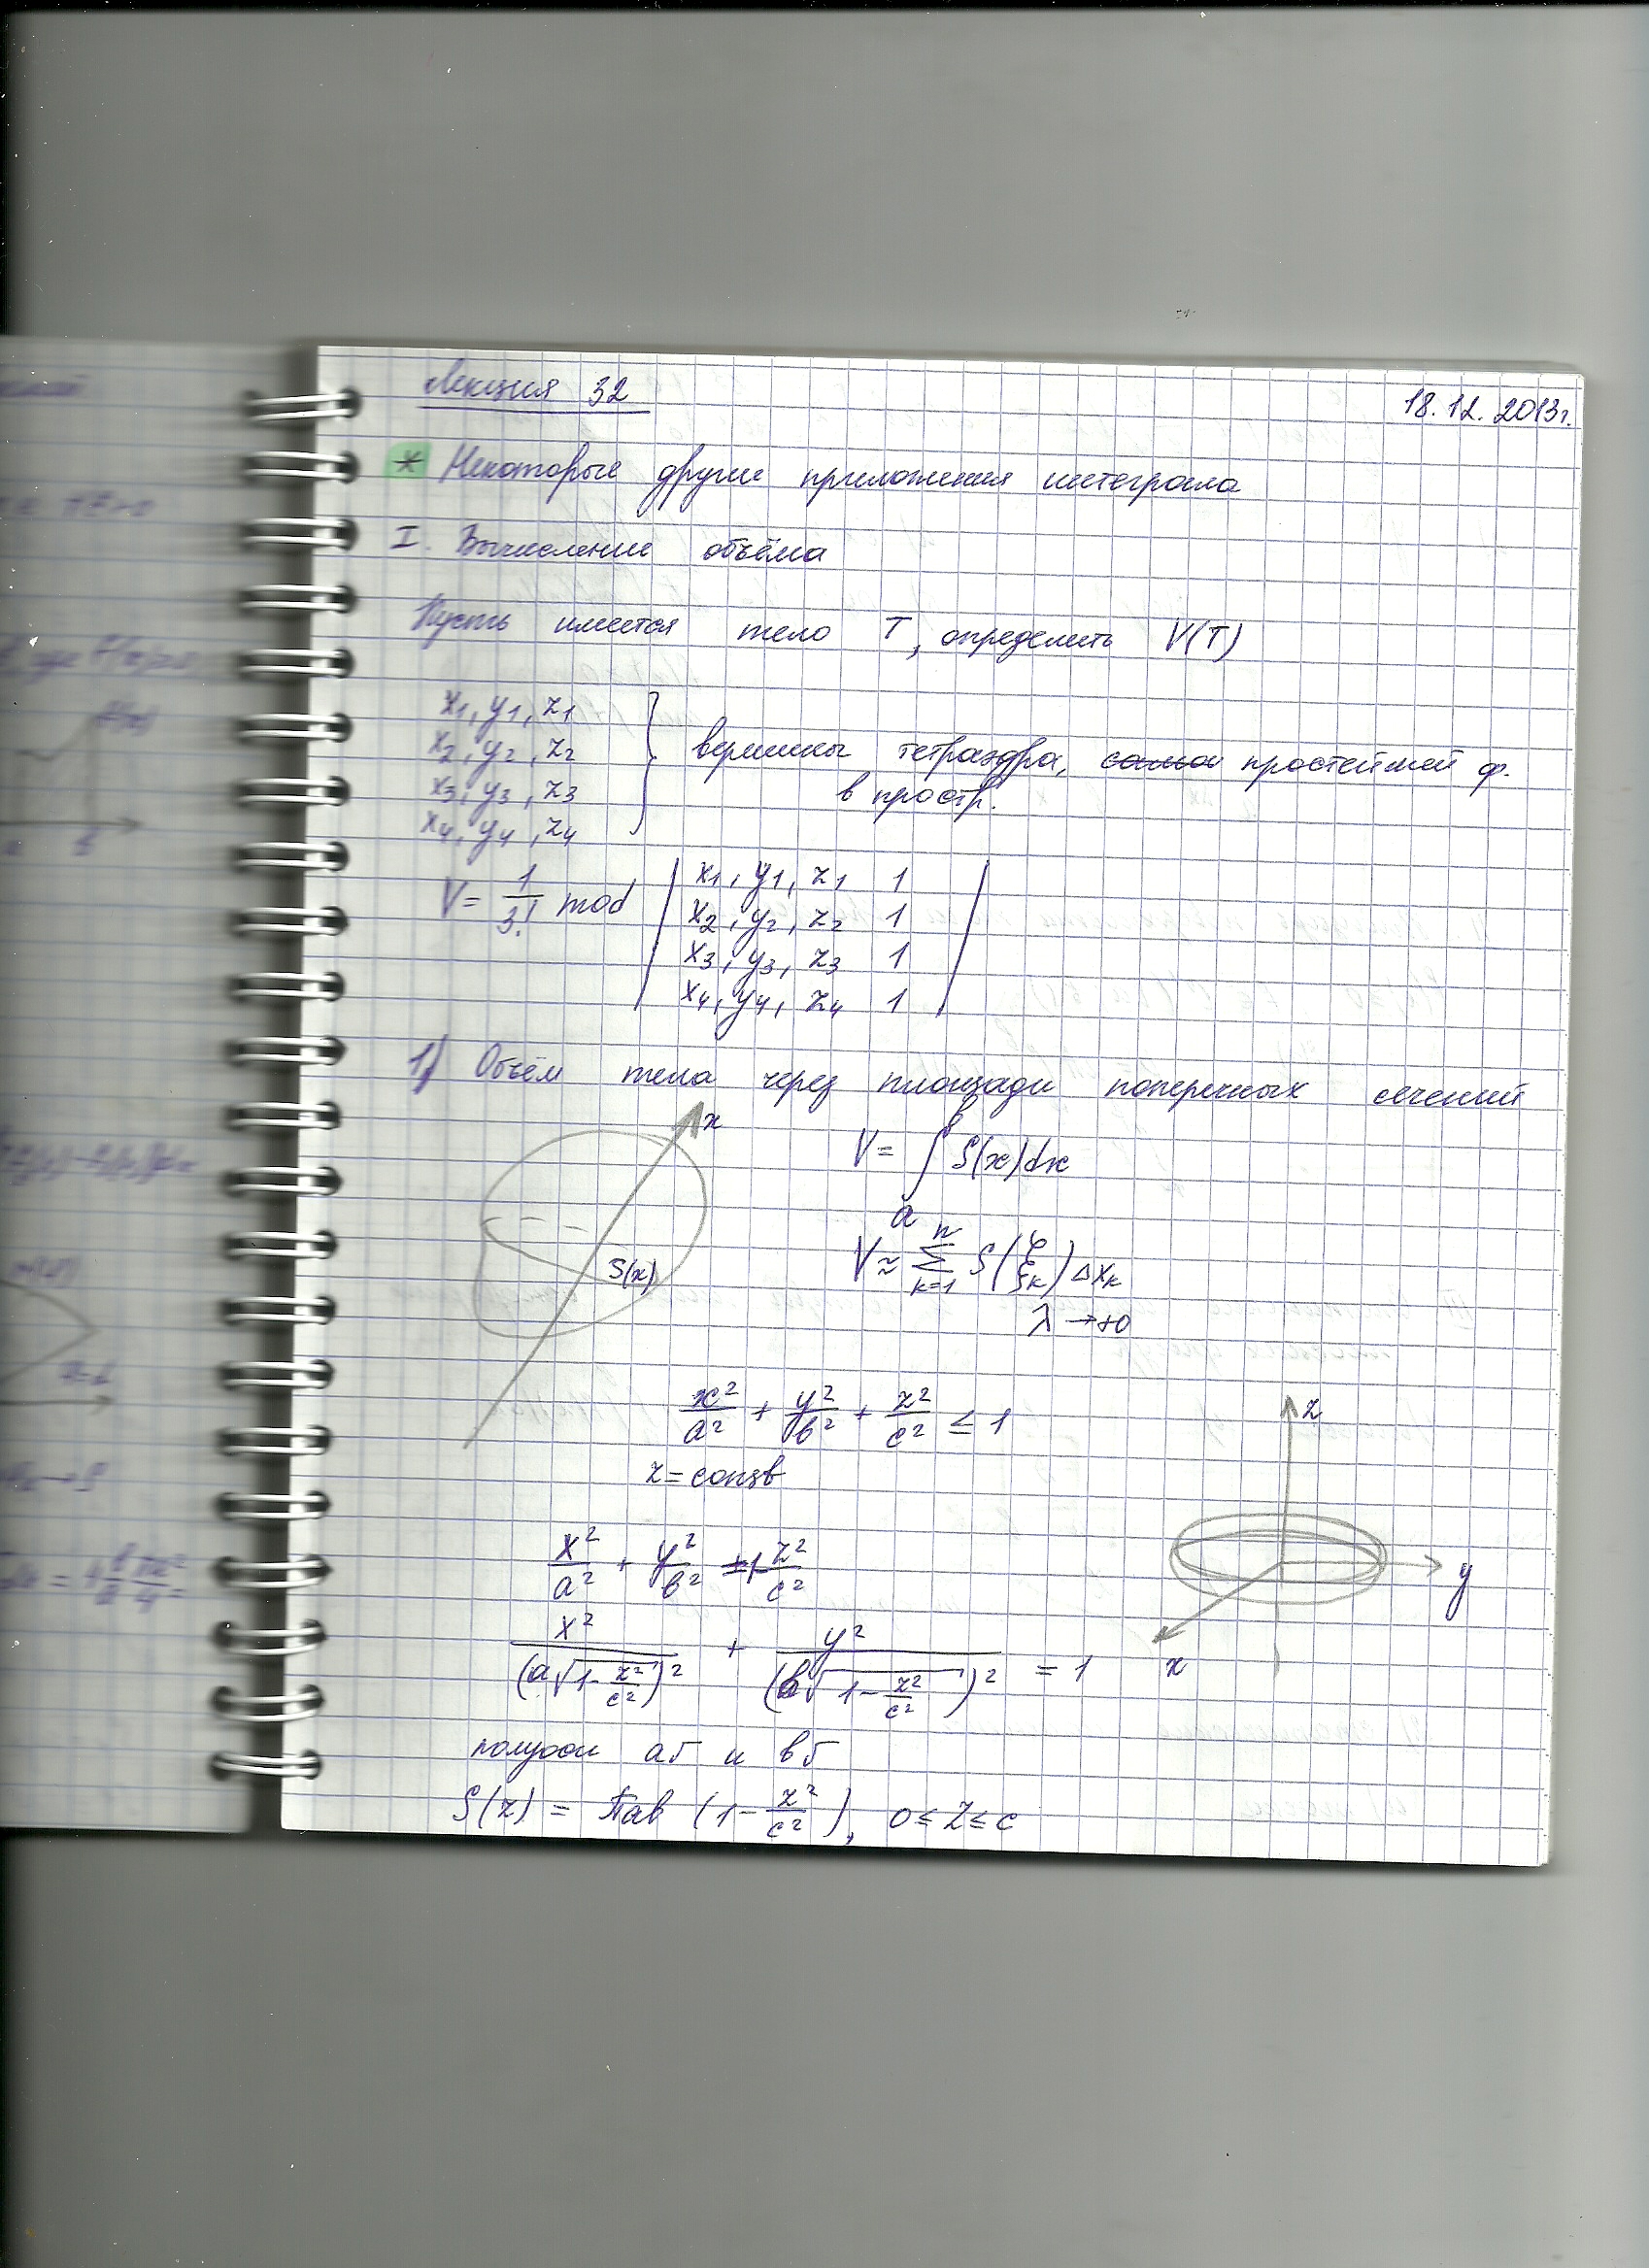 Лекция 32
18.12.2013г.
* Некоторые другие приложения интеграла
I. Вычисление объёма
Пусть имеется тело T, определить V(T)
x₁, y₁, z₁
x₂, y₂, z₂
x₃, y₃, z₃
x₄, y₄, z₄
} вершины тетраэдра, простейшей ф.
в простр.
V = 1/3! mod | x₁, y₁, z₁ 1
x₂, y₂, z₂ 1
x₃, y₃, z₃ 1
x₄, y₄, z₄ 1 |
1) Объём тела через площади поперечных сечений
x
S(x)
V = ∫ₐᵇ S(x)dx
V ≈ ∑ₖ₌₁ⁿ S(ξₖ) Δxₖ
λ → +0
x²/a² + y²/b² + z²/c² ≤ 1
z = const
x²/a² + y²/b² = 1 - z²/c²
x²/(a√(1 - z²/c²))² + y²/(b√(1 - z²/c²))² = 1
z
y
x
полуоси a√ и b√
S(z) = πab (1 - z²/c²), 0 ≤ z ≤ c